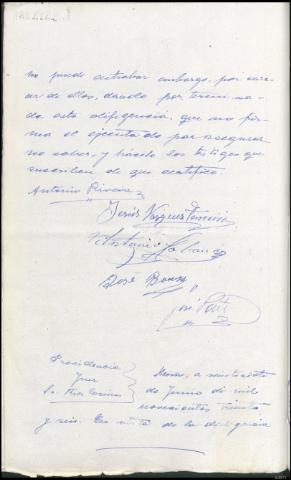 no puede extrabar embargo, por care-
cer de ellos, dando por termi na-
da esta diligencia, que no fir-
ma el ejecutado por asegurar
no saber, y hácelo los testigos que
suscriben de que certifico.
Antonio
Jesús Vazquez
Antonio
José Bouza
José
Presidencia
Juez
Sr.
a veintisiete
de Junio de mil
novecientos treinta
y seis. En vista de la diligencia